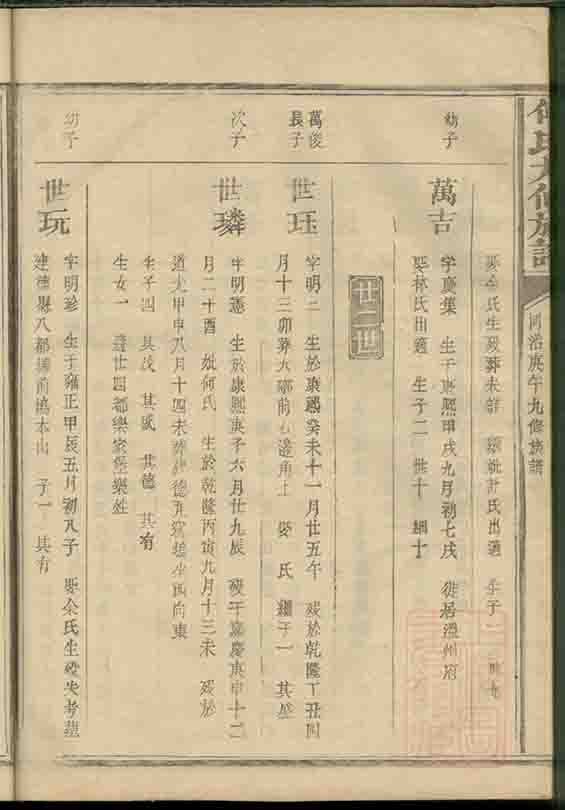 何氏九修族譜
同治庚午九修族譜
娶余氏生歿葬未詳 繼
氏出適 生子
幼子
萬吉
字慶集 生于康熙甲戌九月初七戌 徙居
州府
娶林氏出適 生子二 世十 細十
廿二世
萬俊長子
世珏
字明二 生於康熙癸未十一月廿五午 歿於乾隆丁丑四
月十三卯葬大
前右邊角上 娶 氏 繼子一 其盛
次子
世璘
字明憲 生於康熙庚子六月廿九辰 歿于嘉慶庚申十二
月二十酉 妣何氏 生於乾隆丙寅九月十三未 歿於
道光甲申八月十四未葬建德
坐西向東
生子四 其茂 其盛 其德 其有
生女一 適廿四都樂家堡樂姓
幼子
世玩
字明珍 生于雍正甲辰五月初八子 娶余氏生歿失考葬
建德縣八都橫前
本山 子一 其有